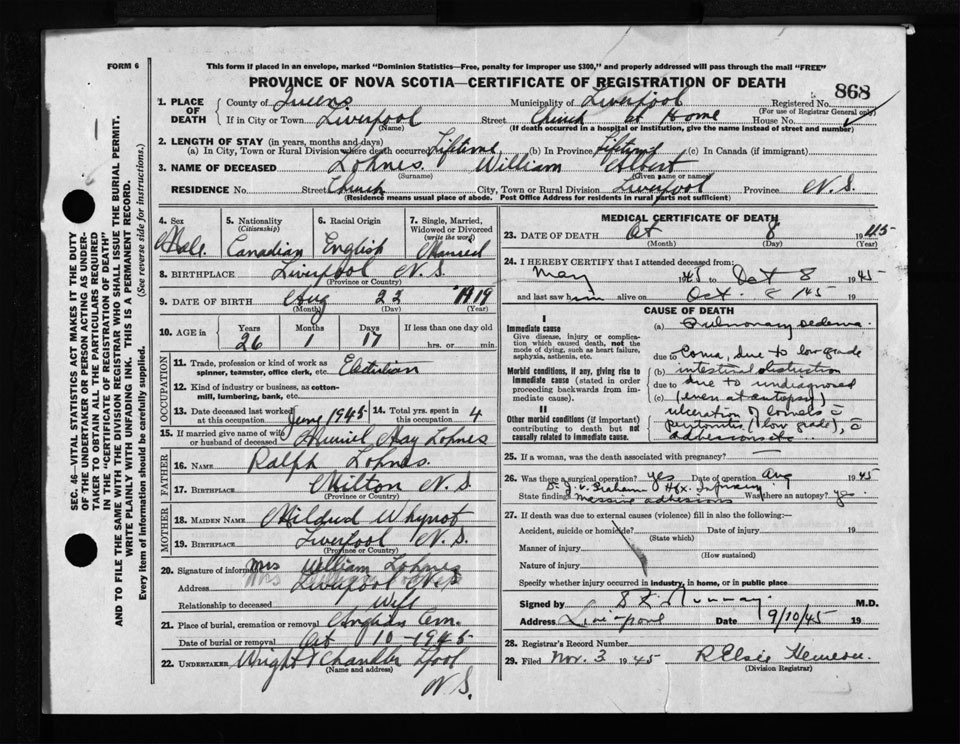 FORM 6
This form if placed in an envelope, marked "Dominion Statistics—Free, penalty for improper use $300," and properly addressed will pass through the mail "FREE"
PROVINCE OF NOVA SCOTIA—CERTIFICATE OF REGISTRATION OF DEATH
868
1. PLACE OF DEATH
County of Queens Municipality of Liverpool Registered No.
(For use of Registrar General only)
If in City or Town Liverpool Street Church At Home House No.
(Name) (If death occurred in a hospital or institution, give the name instead of street and number)
2. LENGTH OF STAY (in years, months and days)
(a) In City, Town or Rural Division where death occurred Lifetime (b) In Province Lifetime (c) In Canada (if immigrant)
3. NAME OF DECEASED Lohnes. William Albert
(Surname) (Given name or names)
RESIDENCE No. Street Church City, Town or Rural Division Liverpool Province N.S.
(Residence means usual place of abode. Post Office Address for residents in rural parts not sufficient)
SEC. 46—VITAL STATISTICS ACT MAKES IT THE DUTY
OF THE UNDERTAKER OR PERSON ACTING AS UNDER-
TAKER TO OBTAIN ALL THE PARTICULARS REQUIRED
IN THE "CERTIFICATE OF REGISTRATION OF DEATH"
AND TO FILE THE SAME WITH THE DIVISION REGISTRAR WHO SHALL ISSUE THE BURIAL PERMIT.
WRITE PLAINLY WITH UNFADING INK. THIS IS A PERMANENT RECORD.
Every item of information should be carefully supplied. (See reverse side for instructions.)
4. Sex
Male.
5. Nationality
(Citizenship)
Canadian
6. Racial Origin
English
7. Single, Married, Widowed or Divorced
(write the word)
Married
8. BIRTHPLACE Liverpool N.S.
(Province or Country)
9. DATE OF BIRTH Aug 22 1919
(Month) (Day) (Year)
10. AGE in Years Months Days If less than one day old
26 1 17 hrs. or min.
OCCUPATION
11. Trade, profession or kind of work as
spinner, teamster, office clerk, etc.
12. Kind of industry or business, as cotton-
mill, lumbering, bank, etc.
13. Date deceased last worked at this occupation 1945 14. Total yrs. spent in this occupation 4
15. If married give name of wife or husband of deceased May Lohnes
FATHER
16. NAME Ralph Lohnes.
17. BIRTHPLACE Milton N.S.
(Province or Country)
MOTHER
18. MAIDEN NAME Mildred Whynot
19. BIRTHPLACE Liverpool N.S.
(Province or Country)
20. Signature of informant Mrs William Lohnes
Address Liverpool N.S
Relationship to deceased Wife
21. Place of burial, cremation or removal Cem.
Date of burial or removal Oct 10-1945
22. UNDERTAKER Wright Chandler Lpool
(Name and address)
N.S.
MEDICAL CERTIFICATE OF DEATH
23. DATE OF DEATH Oct 8 1945
(Month) (Day) (Year)
24. I HEREBY CERTIFY that I attended deceased from:
May 1945 to Oct 8 1945
and last saw him alive on Oct. 8/45 19
CAUSE OF DEATH
I
Immediate cause
Give disease, injury or complica-
tion which caused death, not the
mode of dying, such as heart failure,
asphyxia, asthenia, etc.
Morbid conditions, if any, giving rise to
immediate cause (stated in order
proceeding backwards from im-
mediate cause).
II
Other morbid conditions (if important)
contributing to death but not
causally related to immediate cause.
(a) Pulmonary oedema.
due to Coma, due to low grade
(b) intestinal obstruction
due to due to undiagnosed
(c) (even at autopsy)
ulceration of bowels
peritonitis (low grade),
adhesions etc.
25. If a woman, was the death associated with pregnancy? —
26. Was there a surgical operation? yes Date of operation Aug 1945
Dr. J. V. Graham Hfx. Infirmary
State findings Massive adhesions Was there an autopsy? yes.
27. If death was due to external causes (violence) fill in also the following:—
Accident, suicide or homicide? Date of injury 19
(State which)
Manner of injury
(How sustained)
Nature of injury
Specify whether injury occurred in industry, in home, or in public place
Signed by Murray. M.D.
Address Liverpool Date 9/10/45 19
28. Registrar's Record Number
29. Filed Nov. 3 1945 R Elsie
(Division Registrar)